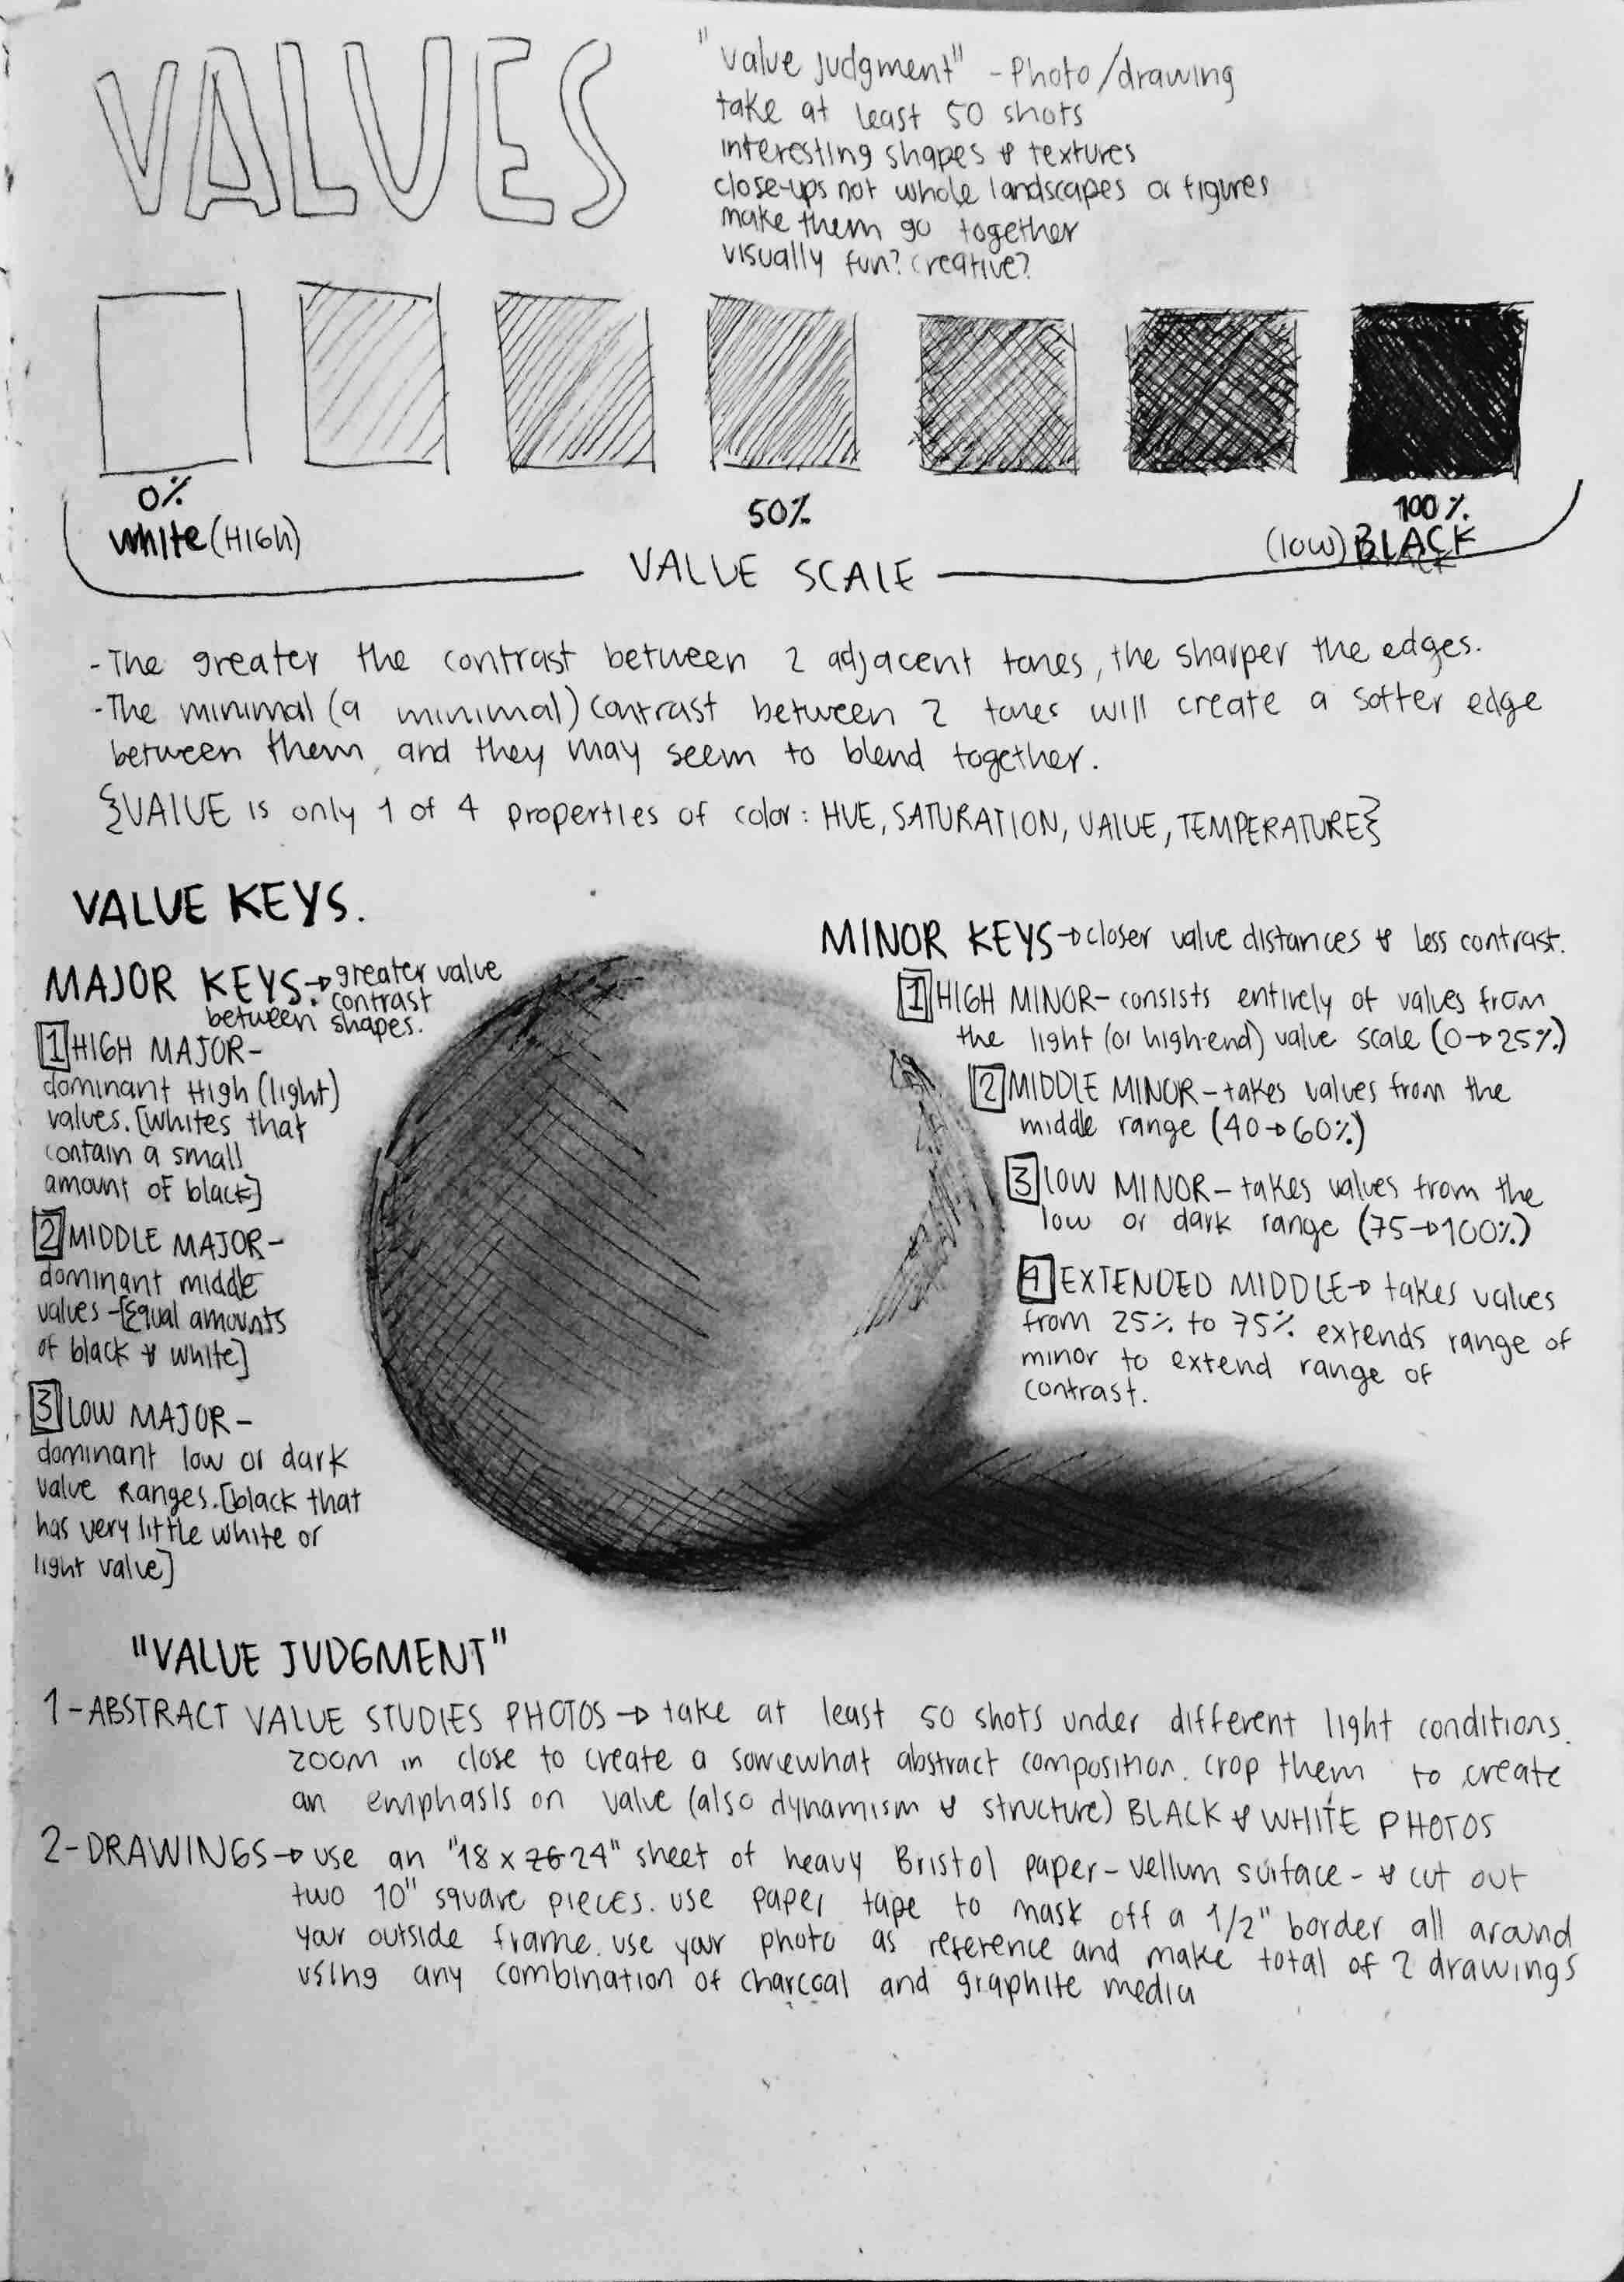 VALUES
"value judgment" - Photo/drawing
take at least 50 shots
interesting shapes & textures
close-ups not whole landscapes or figures
make them go together
visually fun? creative?
0%
white (HIGH)
50%
100%
(low) BLACK
VALUE SCALE
- The greater the contrast between 2 adjacent tones, the sharper the edges.
- The minimal (a minimal) contrast between 2 tones will create a softer edge
between them, and they may seem to blend together.
{VALUE is only 1 of 4 properties of color: HUE, SATURATION, VALUE, TEMPERATURE}
VALUE KEYS.
MAJOR KEYS → greater value
contrast
between shapes.
1 HIGH MAJOR-
dominant HIGH (light)
values. [whites that
contain a small
amount of black]
2 MIDDLE MAJOR-
dominant middle
values - [Equal amounts
of black & white]
3 LOW MAJOR-
dominant low or dark
value Ranges. [black that
has very little white or
light value]
MINOR KEYS → closer value distances & less contrast.
1 HIGH MINOR - consists entirely of values from
the light (or high-end) value scale (0→25%)
2 MIDDLE MINOR - takes values from the
middle range (40→60%)
3 LOW MINOR - takes values from the
low or dark range (75→100%)
4 EXTENDED MIDDLE → takes values
from 25% to 75% extends range of
minor to extend range of
contrast.
"VALUE JUDGMENT"
1- ABSTRACT VALUE STUDIES PHOTOS → take at least 50 shots under different light conditions.
zoom in close to create a somewhat abstract composition. crop them to create
an emphasis on value (also dynamism & structure) BLACK & WHITE PHOTOS
2- DRAWINGS → use an "18 x 24" sheet of heavy Bristol paper - vellum surface - & cut out
two 10" square pieces. use paper tape to mask off a 1/2" border all around
your outside frame. use your photo as reference and make total of 2 drawings
using any combination of charcoal and graphite media